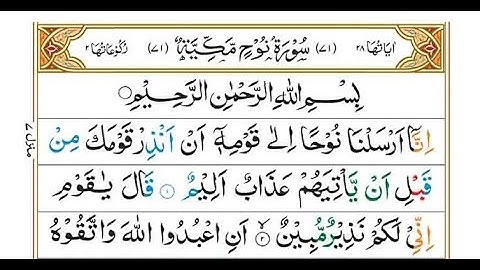 اٰیَاتُهَا ۲۸ (۷۱) سُوْرَةُ نُوْحٍ مَّكِّیَّةٌ (۷۱) رُكُوْعَاتُهَا ۲
بِسْمِ اللهِ الرَّحْمٰنِ الرَّحِیْمِ
اِنَّاۤ اَرْسَلْنَا نُوْحًا اِلٰى قَوْمِهٖۤ اَنْ اَنْذِرْ قَوْمَكَ مِنْ
قَبْلِ اَنْ یَّاْتِیَهُمْ عَذَابٌ اَلِیْمٌ ۱ قَالَ یٰقَوْمِ
اِنِّیْ لَكُمْ نَذِیْرٌ مُّبِیْنٌ ۲ اَنِ اعْبُدُوا اللهَ وَاتَّقُوْهُ
منزل ۷